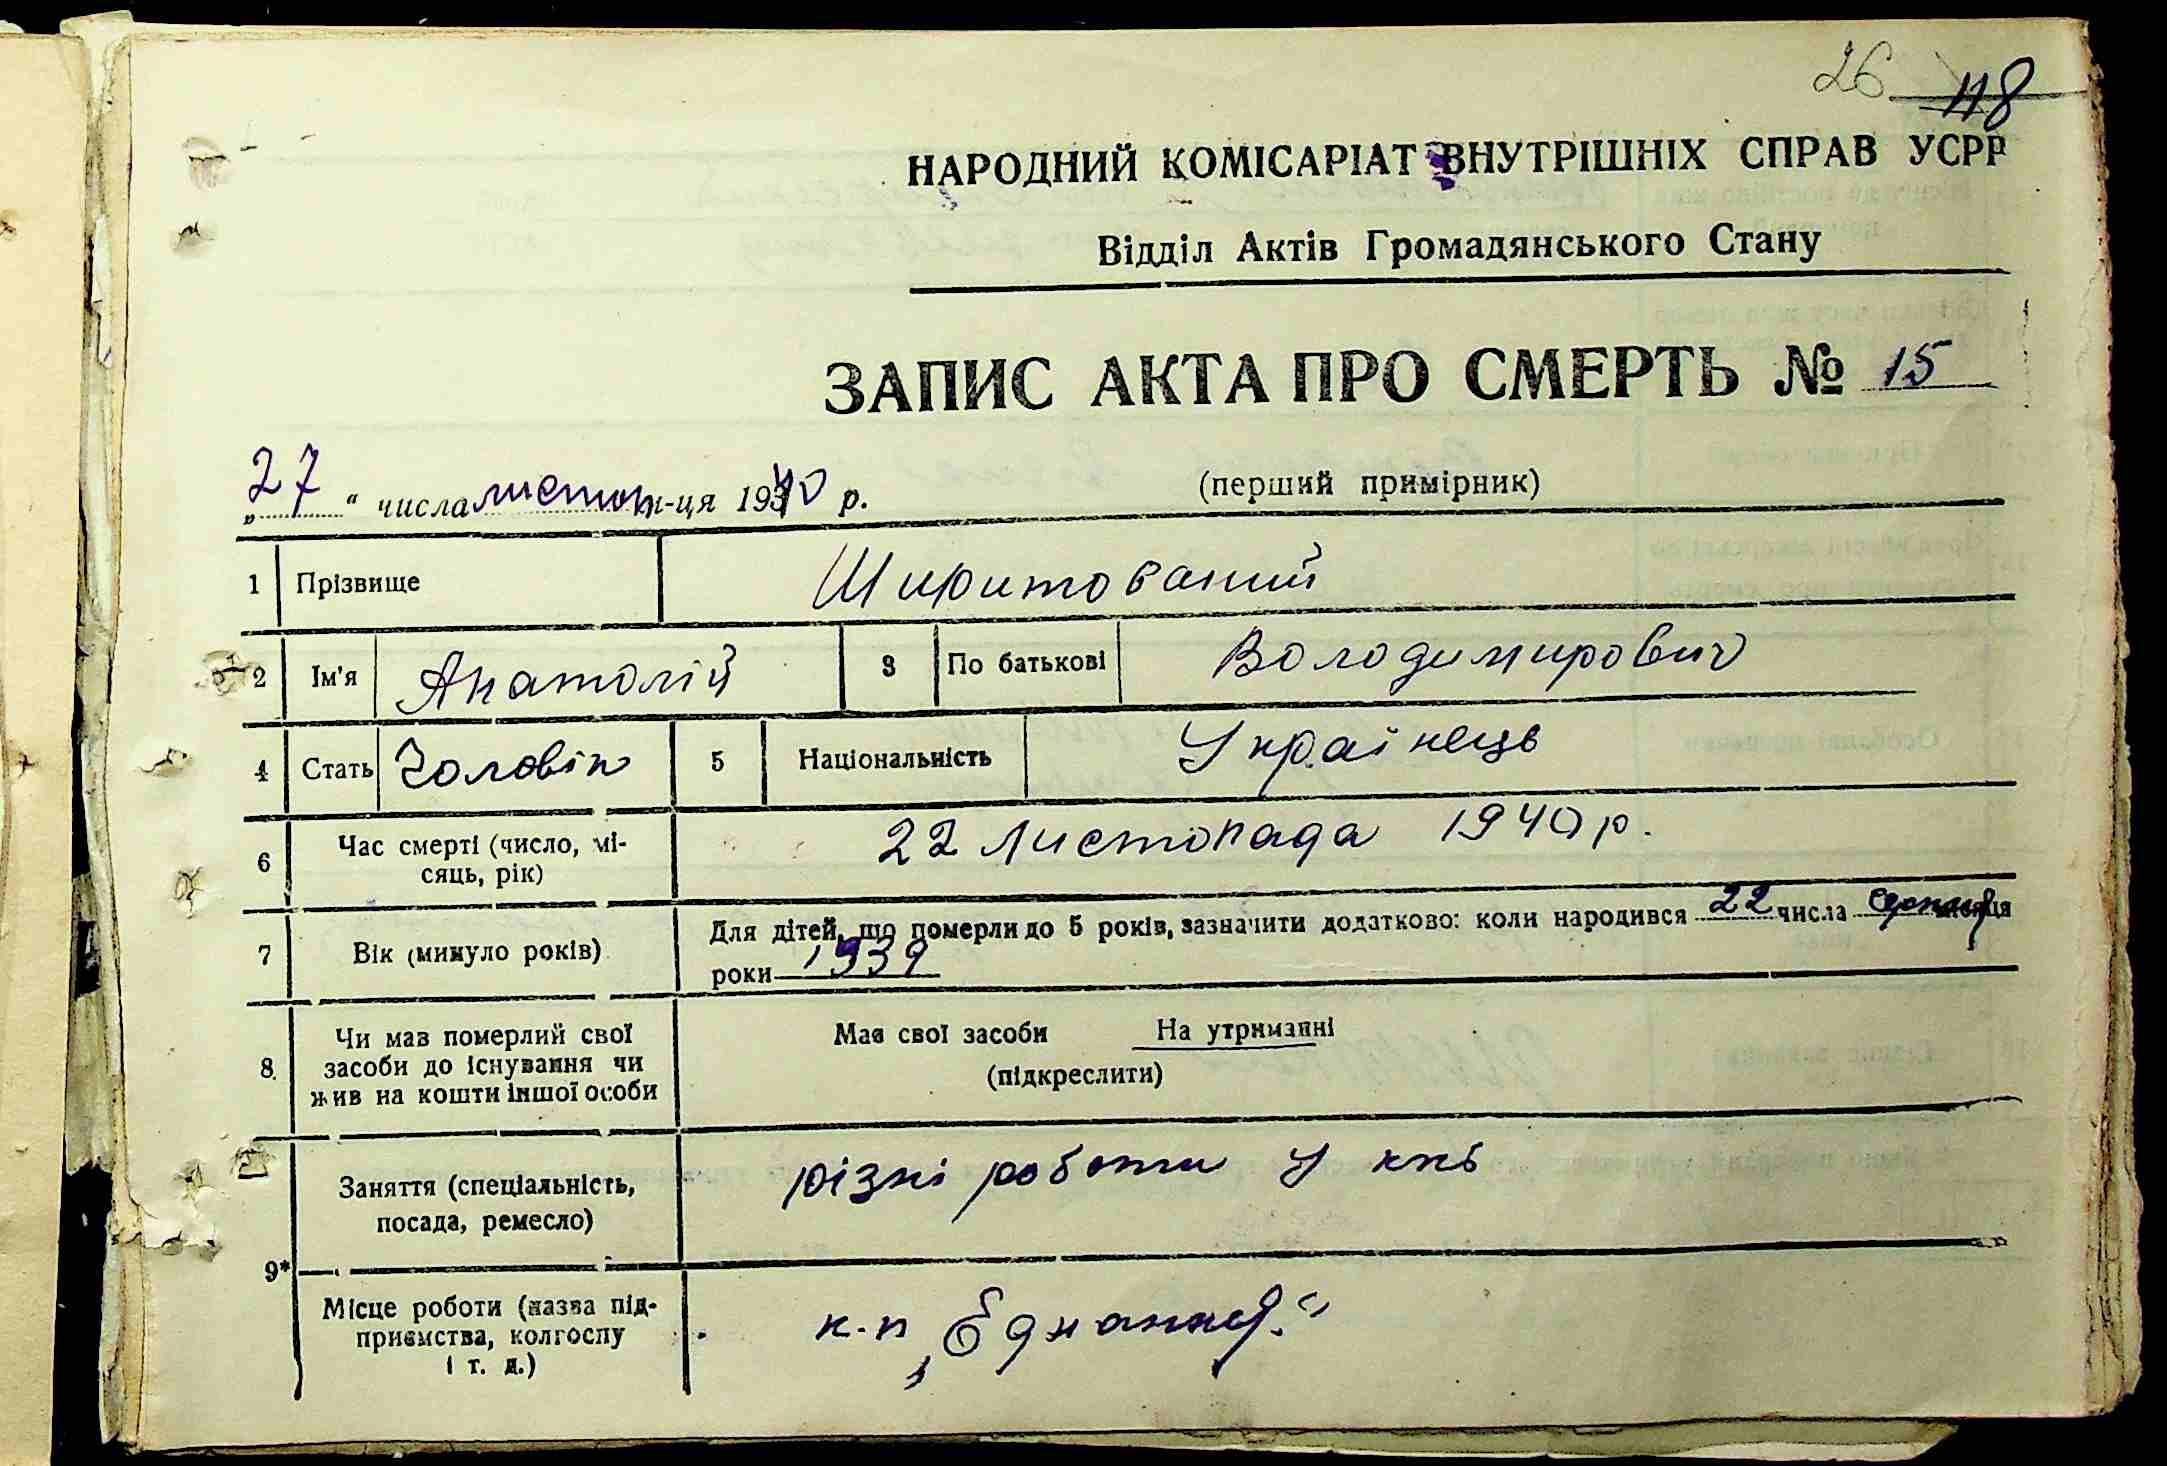 26 118
НАРОДНИЙ КОМІСАРІАТ ВНУТРІШНІХ СПРАВ УСРР
Відділ Актів Громадянського Стану
ЗАПИС АКТА ПРО СМЕРТЬ № 15
„27“ числа листоп м-ця 1940 р. (перший примірник)
1 Прізвище Ширитований
2 Ім'я Анатолій 3 По батькові Володимирович
4 Стать Чоловік 5 Національність Українець
6 Час смерті (число, мі-
сяць, рік) 22 Листопада 1940 р.
7 Вік (минуло років) Для дітей, що померли до 5 років, зазначити додатково: коли народився 22 числа серпня місяця
роки 1939
8. Чи мав померлий свої
засоби до існування чи
жив на кошти іншої особи
Мав свої засоби На утриманні
(підкреслити)
9* Заняття (спеціальність,
посада, ремесло) різні роботи у
Місце роботи (назва під-
приємства, колгоспу
і т. д.) к-п „Єднання“